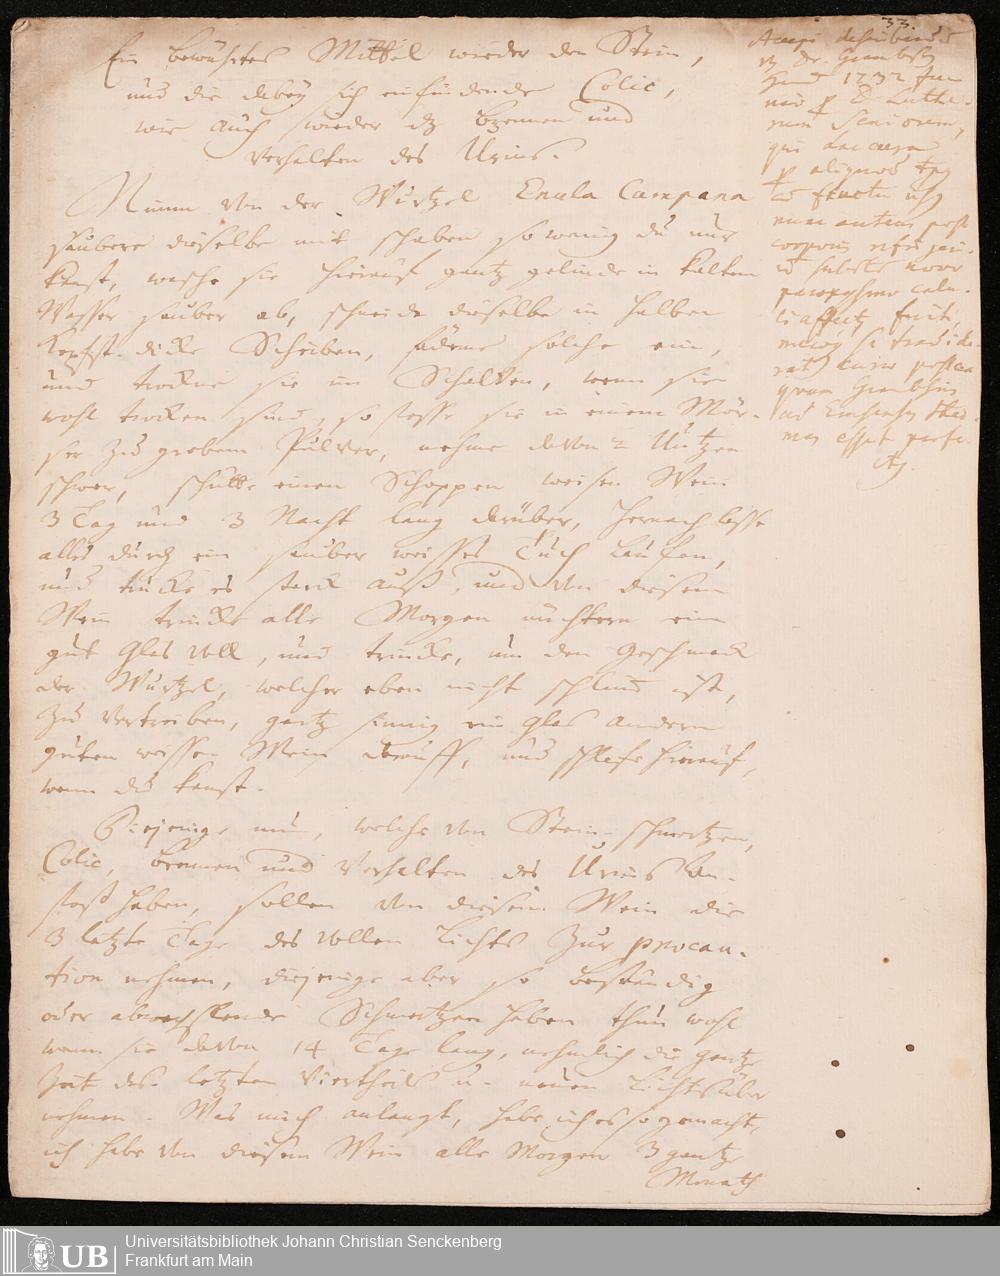 33.
Ein bewährtes Mittel wieder den Stein,
und die dabey sich einfindende Colic,
wie auch wieder dz Brennen und
Verhalten des Urins.
Nimm von der Wurtzel Enula Campana
säubere dieselbe mit schaben so wenig du nur
kanst, wasche sie hierauf gantz gelinde in kaltem
Wasser sauber ab, schneide dieselbe in halben
Kopfst. dicke Scheiben, fädeme solche ein,
und trockne sie im Schatten, wenn sie
wohl trocken sind, so stosse sie in einem Mör-
ser zu grobem Pulver, nehme davon 2 Untzen
schwer, schütte einen Schoppen weisen Wein
3 Tag und 3 Nacht lang darüber, hernach lasse
alles durch ein sauber weisses Tuch laufen,
und trucke es starck auß, und von diesem
Wein trincke alle Morgen nüchtern ein
gut Glas voll, und trincke, um den Geschmack
der Wurtzel, welcher eben nicht schlimm ist,
zu vertreiben, gantz ein Glas andern
guten weissen Wein darauff, und schlafe hierauf,
wenn du kanst.
Diejenige nun, welche von Stein-schmertzen,
Colic, brennen und Verhalten des Urins An-
stoß haben, sollen von diesem Wein die
3 letzte Tage des vollen Lichts zur præcau-
tion nehmen, diejenige aber so beständig
oder abwechslende Schmertzen haben thun wohl
wann sie davon 14 Tage lang, nehmlich die gantze
Zeit des letzten Viertheils u. neuen Lichts über
nehmen. Was mich anlangt, habe ich es so gemacht,
ich habe von diesem Wein alle Morgen 3 gantze
Monath
Dr. Grambs
1732
D. Luthe-
rum Seniorem,
qui hac aqua
p aliquod tps
cum fructu usus
nunc autem post
novo
paroxysmo calcu-
li affectus fuit,
postea
quam Grambsius
ad Embsenses ther-
mas esset profe-
ctus.
UB
Universitätsbibliothek Johann Christian Senckenberg
Frankfurt am Main